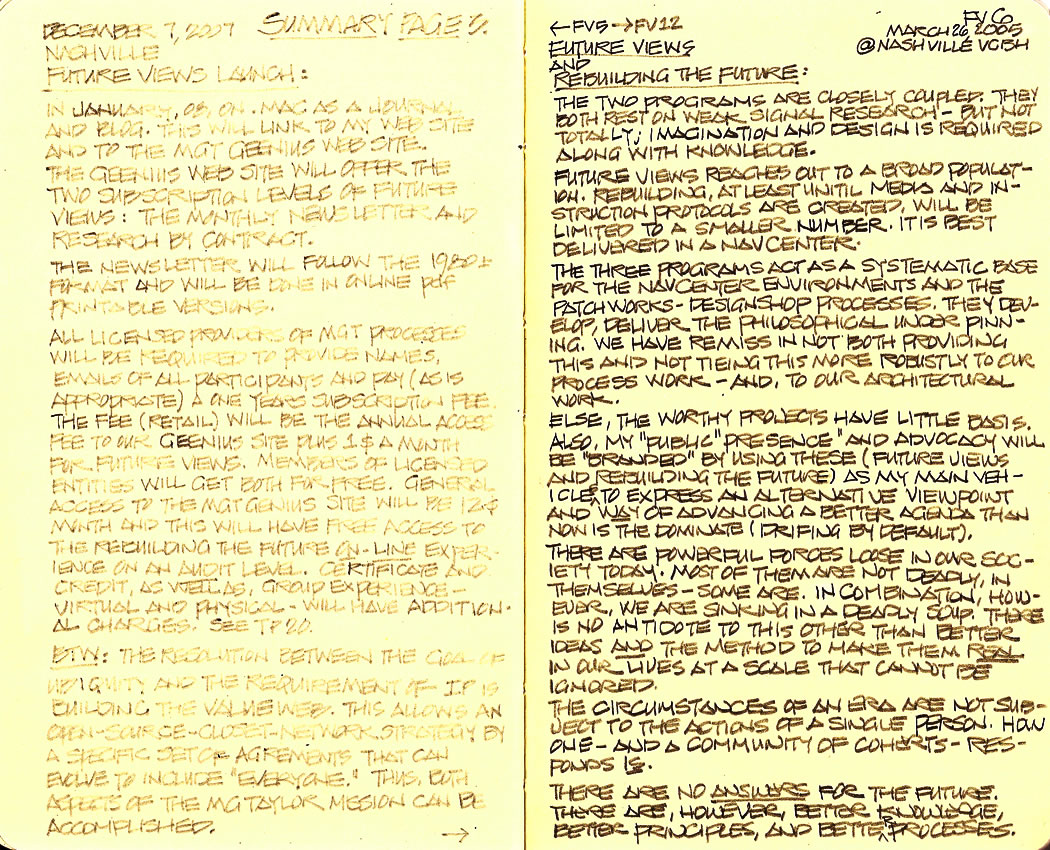 DECEMBER 7, 2007 SUMMARY PAGE
NASHVILLE
FUTURE VIEWS LAUNCH:
IN JANUARY, 08, ON .MAC AS A JOURNAL
AND BLOG. THIS WILL LINK TO MY WEB SITE
AND TO THE MGT GEENIUS WEB SITE.
THE GEENIUS WEB SITE WILL OFFER THE
TWO SUBSCRIPTION LEVELS OF FUTURE
VIEWS: THE MONTHLY NEWSLETTER AND
RESEARCH BY CONTRACT.
THE NEWSLETTER WILL FOLLOW THE 1980s
FORMAT AND WILL BE DONE IN ONLINE pdf
PRINTABLE VERSIONS.
ALL LICENSED PROVIDERS OF MGT PROCESSES
WILL BE REQUIRED TO PROVIDE NAMES,
EMAILS OF ALL PARTICIPANTS AND PAY (AS IS
APPROPRIATE) A ONE YEARS SUBSCRIPTION FEE.
THE FEE (RETAIL) WILL BE THE ANNUAL ACCESS
FEE TO OUR GEENIUS SITE PLUS 1$ A MONTH
FOR FUTURE VIEWS. MEMBERS OF LICENSED
ENTITIES WILL GET BOTH FOR FREE. GENERAL
ACCESS TO THE MGT GENIUS SITE WILL BE 12$
MONTH AND THIS WILL HAVE FREE ACCESS TO
THE REBUILDING THE FUTURE ON-LINE EXPER-
IENCE ON AN AUDIT LEVEL. CERTIFICATE AND
CREDIT, AS WELL AS, GROUP EXPERIENCE -
VIRTUAL AND PHYSICAL - WILL HAVE ADDITION-
AL CHARGES. SEE TP 20.
BTW: THE RESOLUTION BETWEEN THE GOAL OF
UBIQUITY AND THE REQUIREMENT OF I.P IS
BUILDING THE VALUE WEB. THIS ALLOWS AN
OPEN-SOURCE-CLOSET-NETWORK STRATEGY BY
A SPECIFIC SET OF AGREMENTS THAT CAN
EVOLVE TO INCLUDE "EVERYONE." THUS, BOTH
ASPECTS OF THE MG TAYLOR MISSION CAN BE
ACCOMPLISHED.
→
←FV5 →FV12 FV 6
FUTURE VIEWS MARCH 26, 2005
AND @NASHVILLE VCBH
REBUILDING THE FUTURE:
THE TWO PROGRAMS ARE CLOSELY COUPLED. THEY
BOTH REST ON WEAK SIGNAL RESEARCH - BUT NOT
TOTALLY; IMAGINATION AND DESIGN IS REQUIRED
ALONG WITH KNOWLEDGE.
FUTURE VIEWS REACHES OUT TO A BROAD POPULAT-
ION. REBUILDING, AT LEAST UNITIL MEDIA AND IN-
STRUCTION PROTOCOLS ARE CREATED, WILL BE
LIMITED TO A SMALLER NUMBER. IT IS BEST
DELIVERED IN A NAVCENTER.
THE THREE PROGRAMS ACT AS A SYSTEMATIC BASE
FOR THE NAVCENTER ENVIRONMENTS AND THE
PATCH WORKS - DESIGNSHOP PROCESSES. THEY DEV-
ELOP, DELIVER THE PHILOSOPHICAL UNDER PINN-
ING. WE HAVE REMISS IN NOT BOTH PROVIDING
THIS AND NOT TIEING THIS MORE ROBUSTLY TO OUR
PROCESS WORK - AND, TO OUR ARCHITECTURAL
WORK.
ELSE, THE WORTHY PROJECTS HAVE LITTLE BASIS.
ALSO, MY "PUBLIC" PRESENCE" AND ADVOCACY WILL
BE "BRANDED" BY USING THESE (FUTURE VIEWS
AND REBUILDING THE FUTURE) AS MY MAIN VEH-
ICLES TO EXPRESS AN ALTERNATIVE VIEWPOINT
AND WAY OF ADVANCING A BETTER AGENDA THAN
NOW IS THE DOMINATE (DRIFING BY DEFAULT).
THERE ARE POWERFUL FORCES LOOSE IN OUR SOC-
IETY TODAY. MOST OF THEM ARE NOT DEADLY, IN
THEMSELVES - SOME ARE. IN COMBINATION, HOW-
EVER, WE ARE SINKING IN A DEADLY SOUP. THERE
IS NO ANTIDOTE TO THIS OTHER THAN BETTER
IDEAS AND THE METHOD TO MAKE THEM REAL
IN OUR LIVES AT A SCALE THAT CANNOT BE
IGNORED.
THE CIRCUMSTANCES OF AN ERA ARE NOT SUB-
JECT TO THE ACTIONS OF A SINGLE PERSON. HOW
ONE - AND A COMMUNITY OF COHERTS - RES-
PONDS IS.
THERE ARE NO ANSWERS FOR THE FUTURE.
THERE ARE, HOWEVER, BETTER KNOWLEDGE,
BETTER PRINCIPLES, AND BETTER PROCESSES.